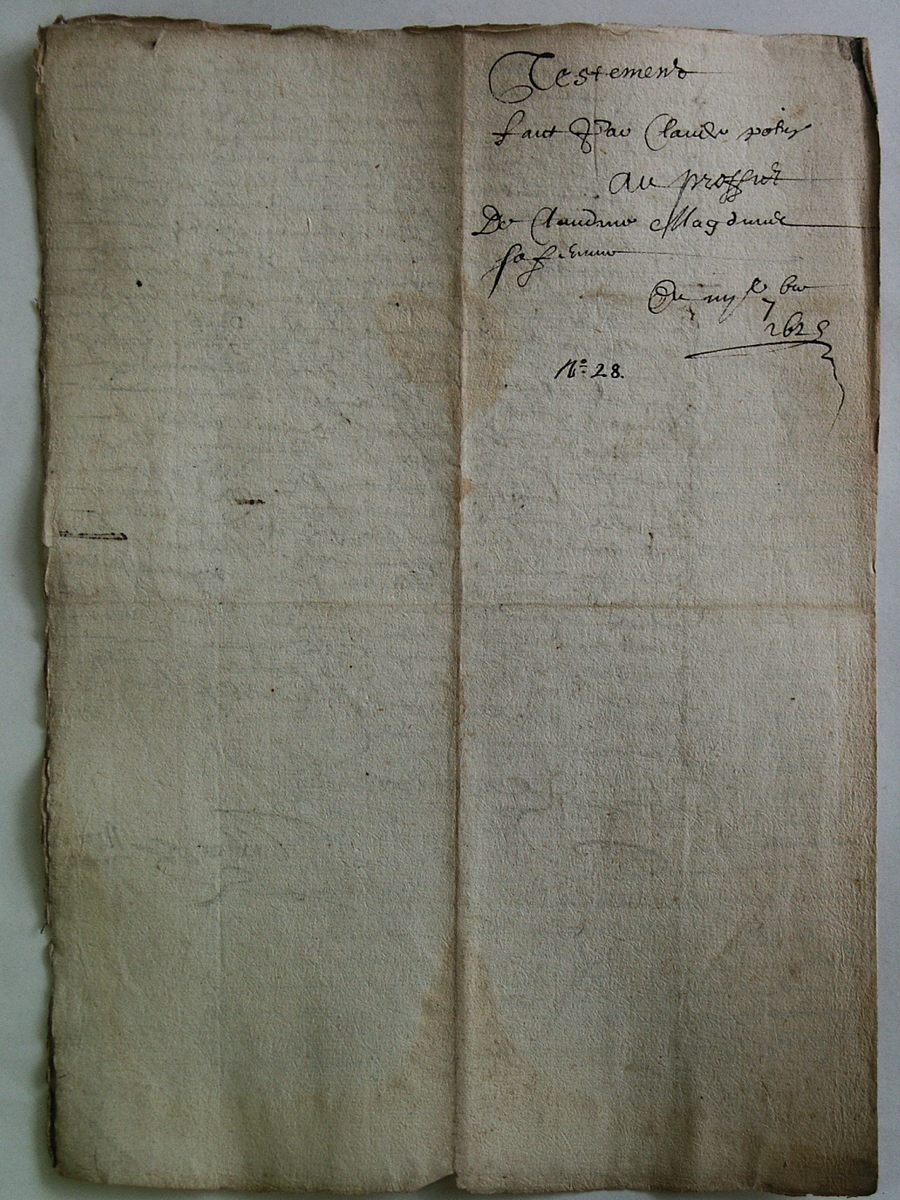 Testement
faict par Claude
au proffict
De Claudine Magdenie
sa femme
Du
1625
No. 28.